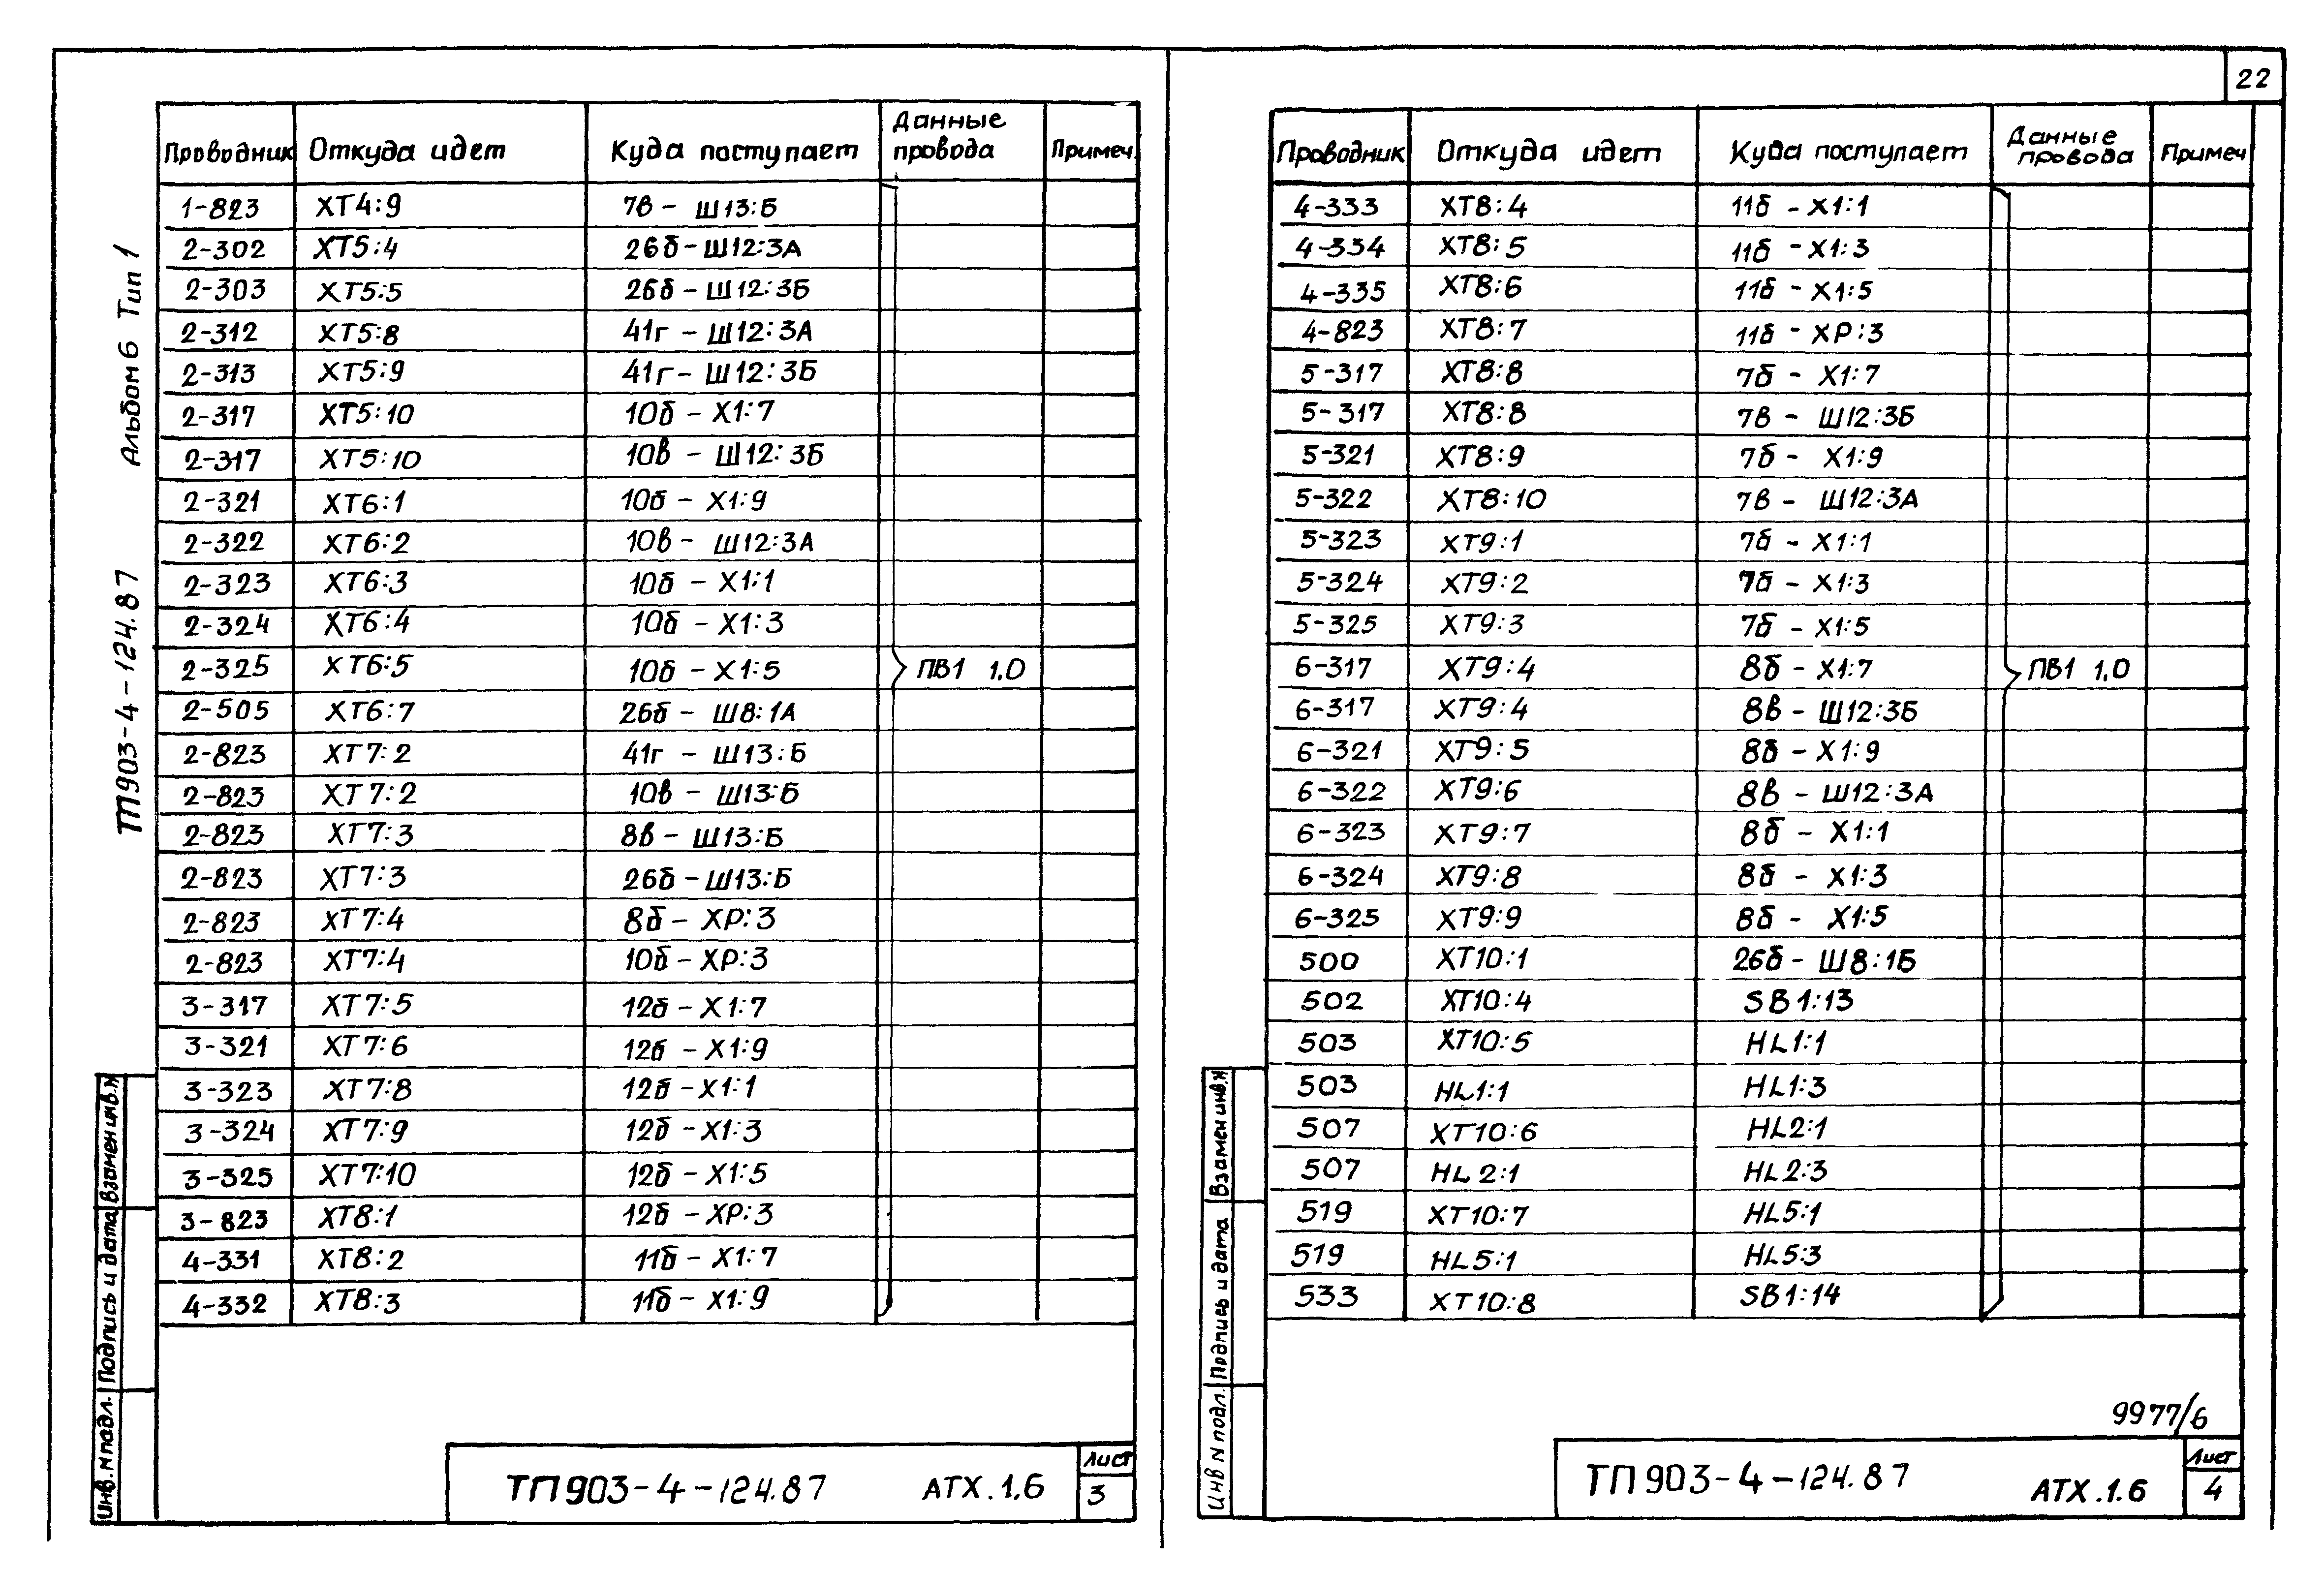 22
ТП903-4-124.87 Альбом 6 Тип 1
Проводник Откуда идет Куда поступает Данные провода Примеч.
1-823 XT4:9 7в - Ш13:Б
2-302 XT5:4 26б - Ш12:3А
2-303 XT5:5 26б - Ш12:3Б
2-312 XT5:8 41г - Ш12:3А
2-313 XT5:9 41г - Ш12:3Б
2-317 XT5:10 10б - X1:7
2-317 XT5:10 10в - Ш12:3Б
2-321 XT6:1 10б - X1:9
2-322 XT6:2 10в - Ш12:3А
2-323 XT6:3 10б - X1:1
2-324 XT6:4 10б - X1:3
2-325 XT6:5 10б - X1:5 ПВ1 1,0
2-505 XT6:7 26б - Ш8:1А
2-823 XT7:2 41г - Ш13:Б
2-823 XT7:2 10в - Ш13:Б
2-823 XT7:3 8в - Ш13:Б
2-823 XT7:3 26б - Ш13:Б
2-823 XT7:4 8б - XP:3
2-823 XT7:4 10б - XP:3
3-317 XT7:5 12б - X1:7
3-321 XT7:6 12б - X1:9
3-323 XT7:8 12б - X1:1
3-324 XT7:9 12б - X1:3
3-325 XT7:10 12б - X1:5
3-823 XT8:1 12б - XP:3
4-331 XT8:2 11б - X1:7
4-332 XT8:3 11б - X1:9
Инв. N подл. Подпись и дата Взамен инв.N
ТП903-4-124.87 АТХ.1.6 Лист 3
Проводник Откуда идет Куда поступает Данные провода Примеч
4-333 XT8:4 11б - X1:1
4-334 XT8:5 11б - X1:3
4-335 XT8:6 11б - X1:5
4-823 XT8:7 11б - XP:3
5-317 XT8:8 7б - X1:7
5-317 XT8:8 7в - Ш12:3Б
5-321 XT8:9 7б - X1:9
5-322 XT8:10 7в - Ш12:3А
5-323 XT9:1 7б - X1:1
5-324 XT9:2 7б - X1:3
5-325 XT9:3 7б - X1:5
6-317 XT9:4 8б - X1:7 ПВ1 1,0
6-317 XT9:4 8в - Ш12:3Б
6-321 XT9:5 8б - X1:9
6-322 XT9:6 8в - Ш12:3А
6-323 XT9:7 8б - X1:1
6-324 XT9:8 8б - X1:3
6-325 XT9:9 8б - X1:5
500 XT10:1 26б - Ш8:1Б
502 XT10:4 SB1:13
503 XT10:5 HL1:1
503 HL1:1 HL1:3
507 XT10:6 HL2:1
507 HL2:1 HL2:3
519 XT10:7 HL5:1
519 HL5:1 HL5:3
533 XT10:8 SB1:14
Инв N подл. Подпись и дата Взамен инв.N
9977/6
ТП903-4-124.87 АТХ.1.6 Лист 4